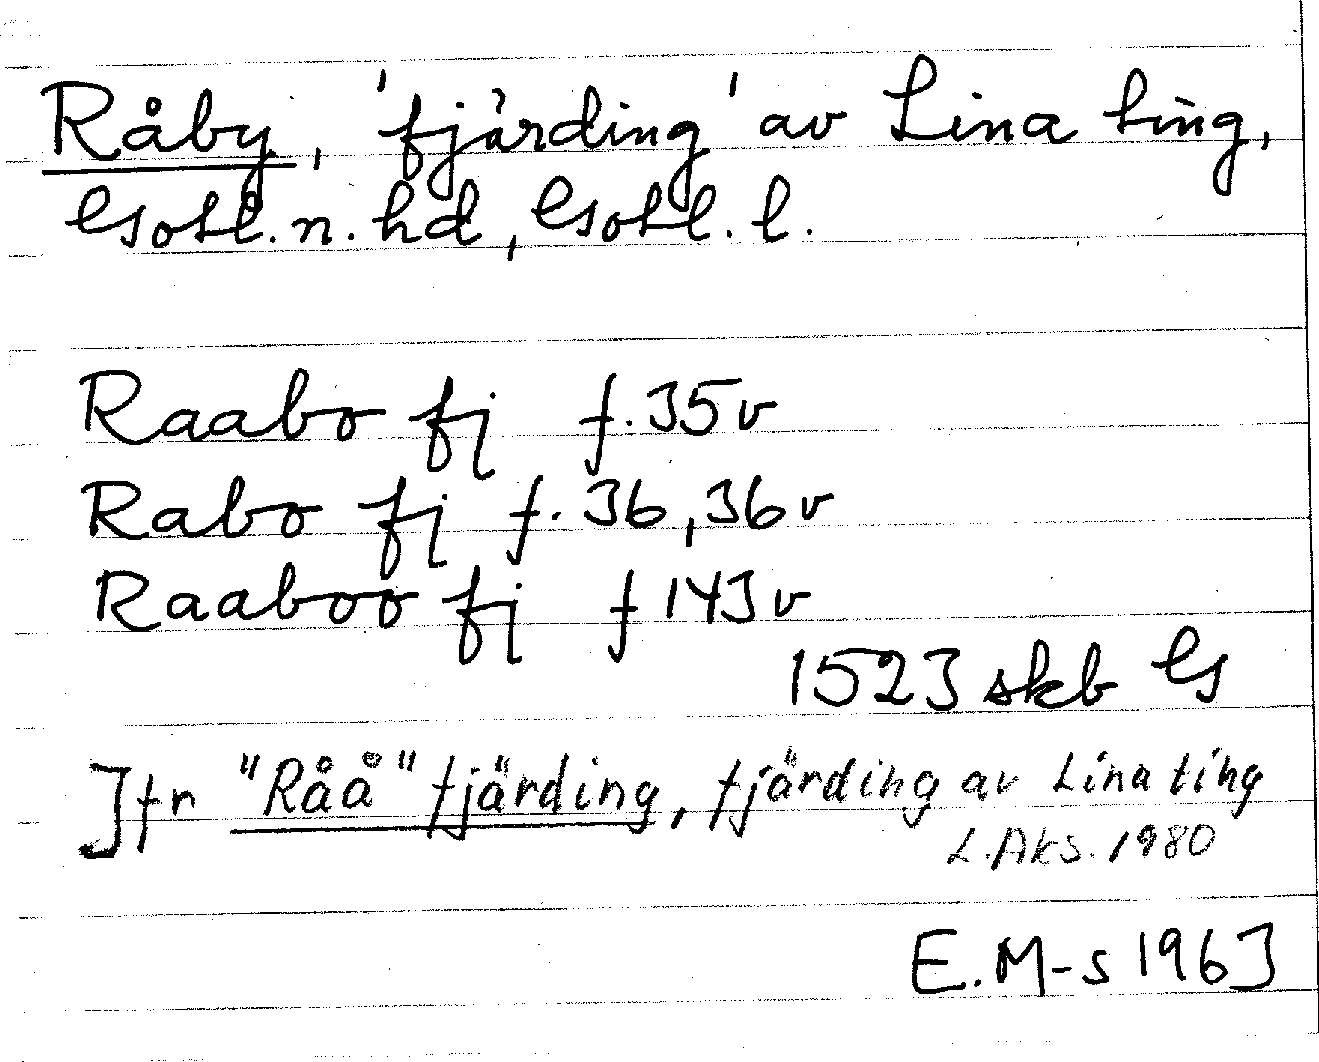 Råby, 'fjärding' av Lina ting,
Gotl. n. hd, Gotl. l.
Raabo fj f. 35v
Rabo fj f. 36, 36v
Raaboo fj f 143v
1523 skb G
Jfr "Råå" fjärding, fjärding av Lina ting
L.Aks. 1980
E.M-s 1963